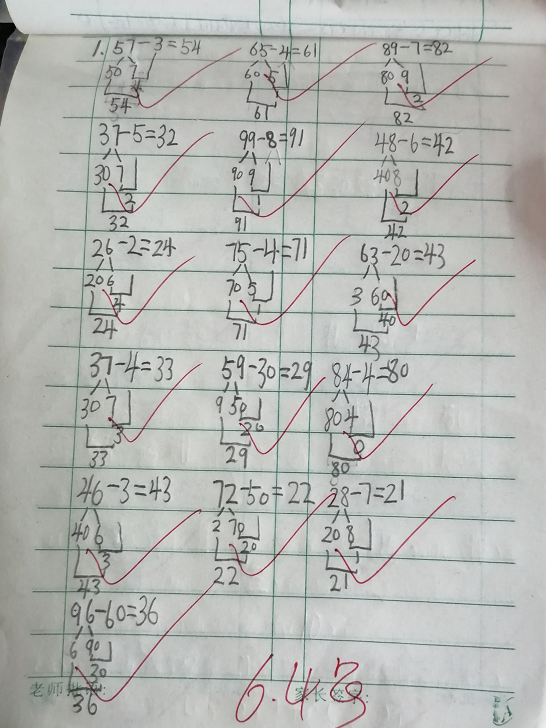 1. 57-3=54 65-4=61 89-7=82
50 7 60 5 80 9
4 1 2
54 61 82
37-5=32 99-8=91 48-6=42
30 7 90 9 40 8
2 1 2
32 91 42
26-2=24 75-4=71 63-20=43
20 6 70 5 3 60
4 1 40
24 71 43
37-4=33 59-30=29 84-4=80
30 7 9 50 80 4
3 20 0
33 29 80
46-3=43 72-50=22 28-7=21
40 6 2 70 20 8
3 20 1
43 22 21
96-60=36
6 90
30
36
老师 家长签字: